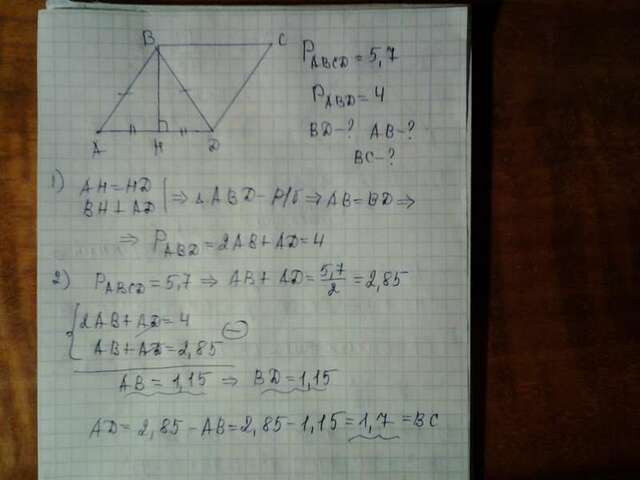 B C
A H D
P ABCD = 5,7
P ABD = 4
BD - ? AB - ?
BC - ?
1) AH = HD
BH ⊥ AD | ⇒ △ABD - р/б ⇒ AB = BD ⇒
⇒ P ABD = 2AB + AD = 4
2) P ABCD = 5,7 ⇒ AB + AD = 5,7/2 = 2,85
{ 2AB + AD = 4
AB + AD = 2,85 (−)
AB = 1,15 ⇒ BD = 1,15
AD = 2,85 - AB = 2,85 - 1,15 = 1,7 = BC